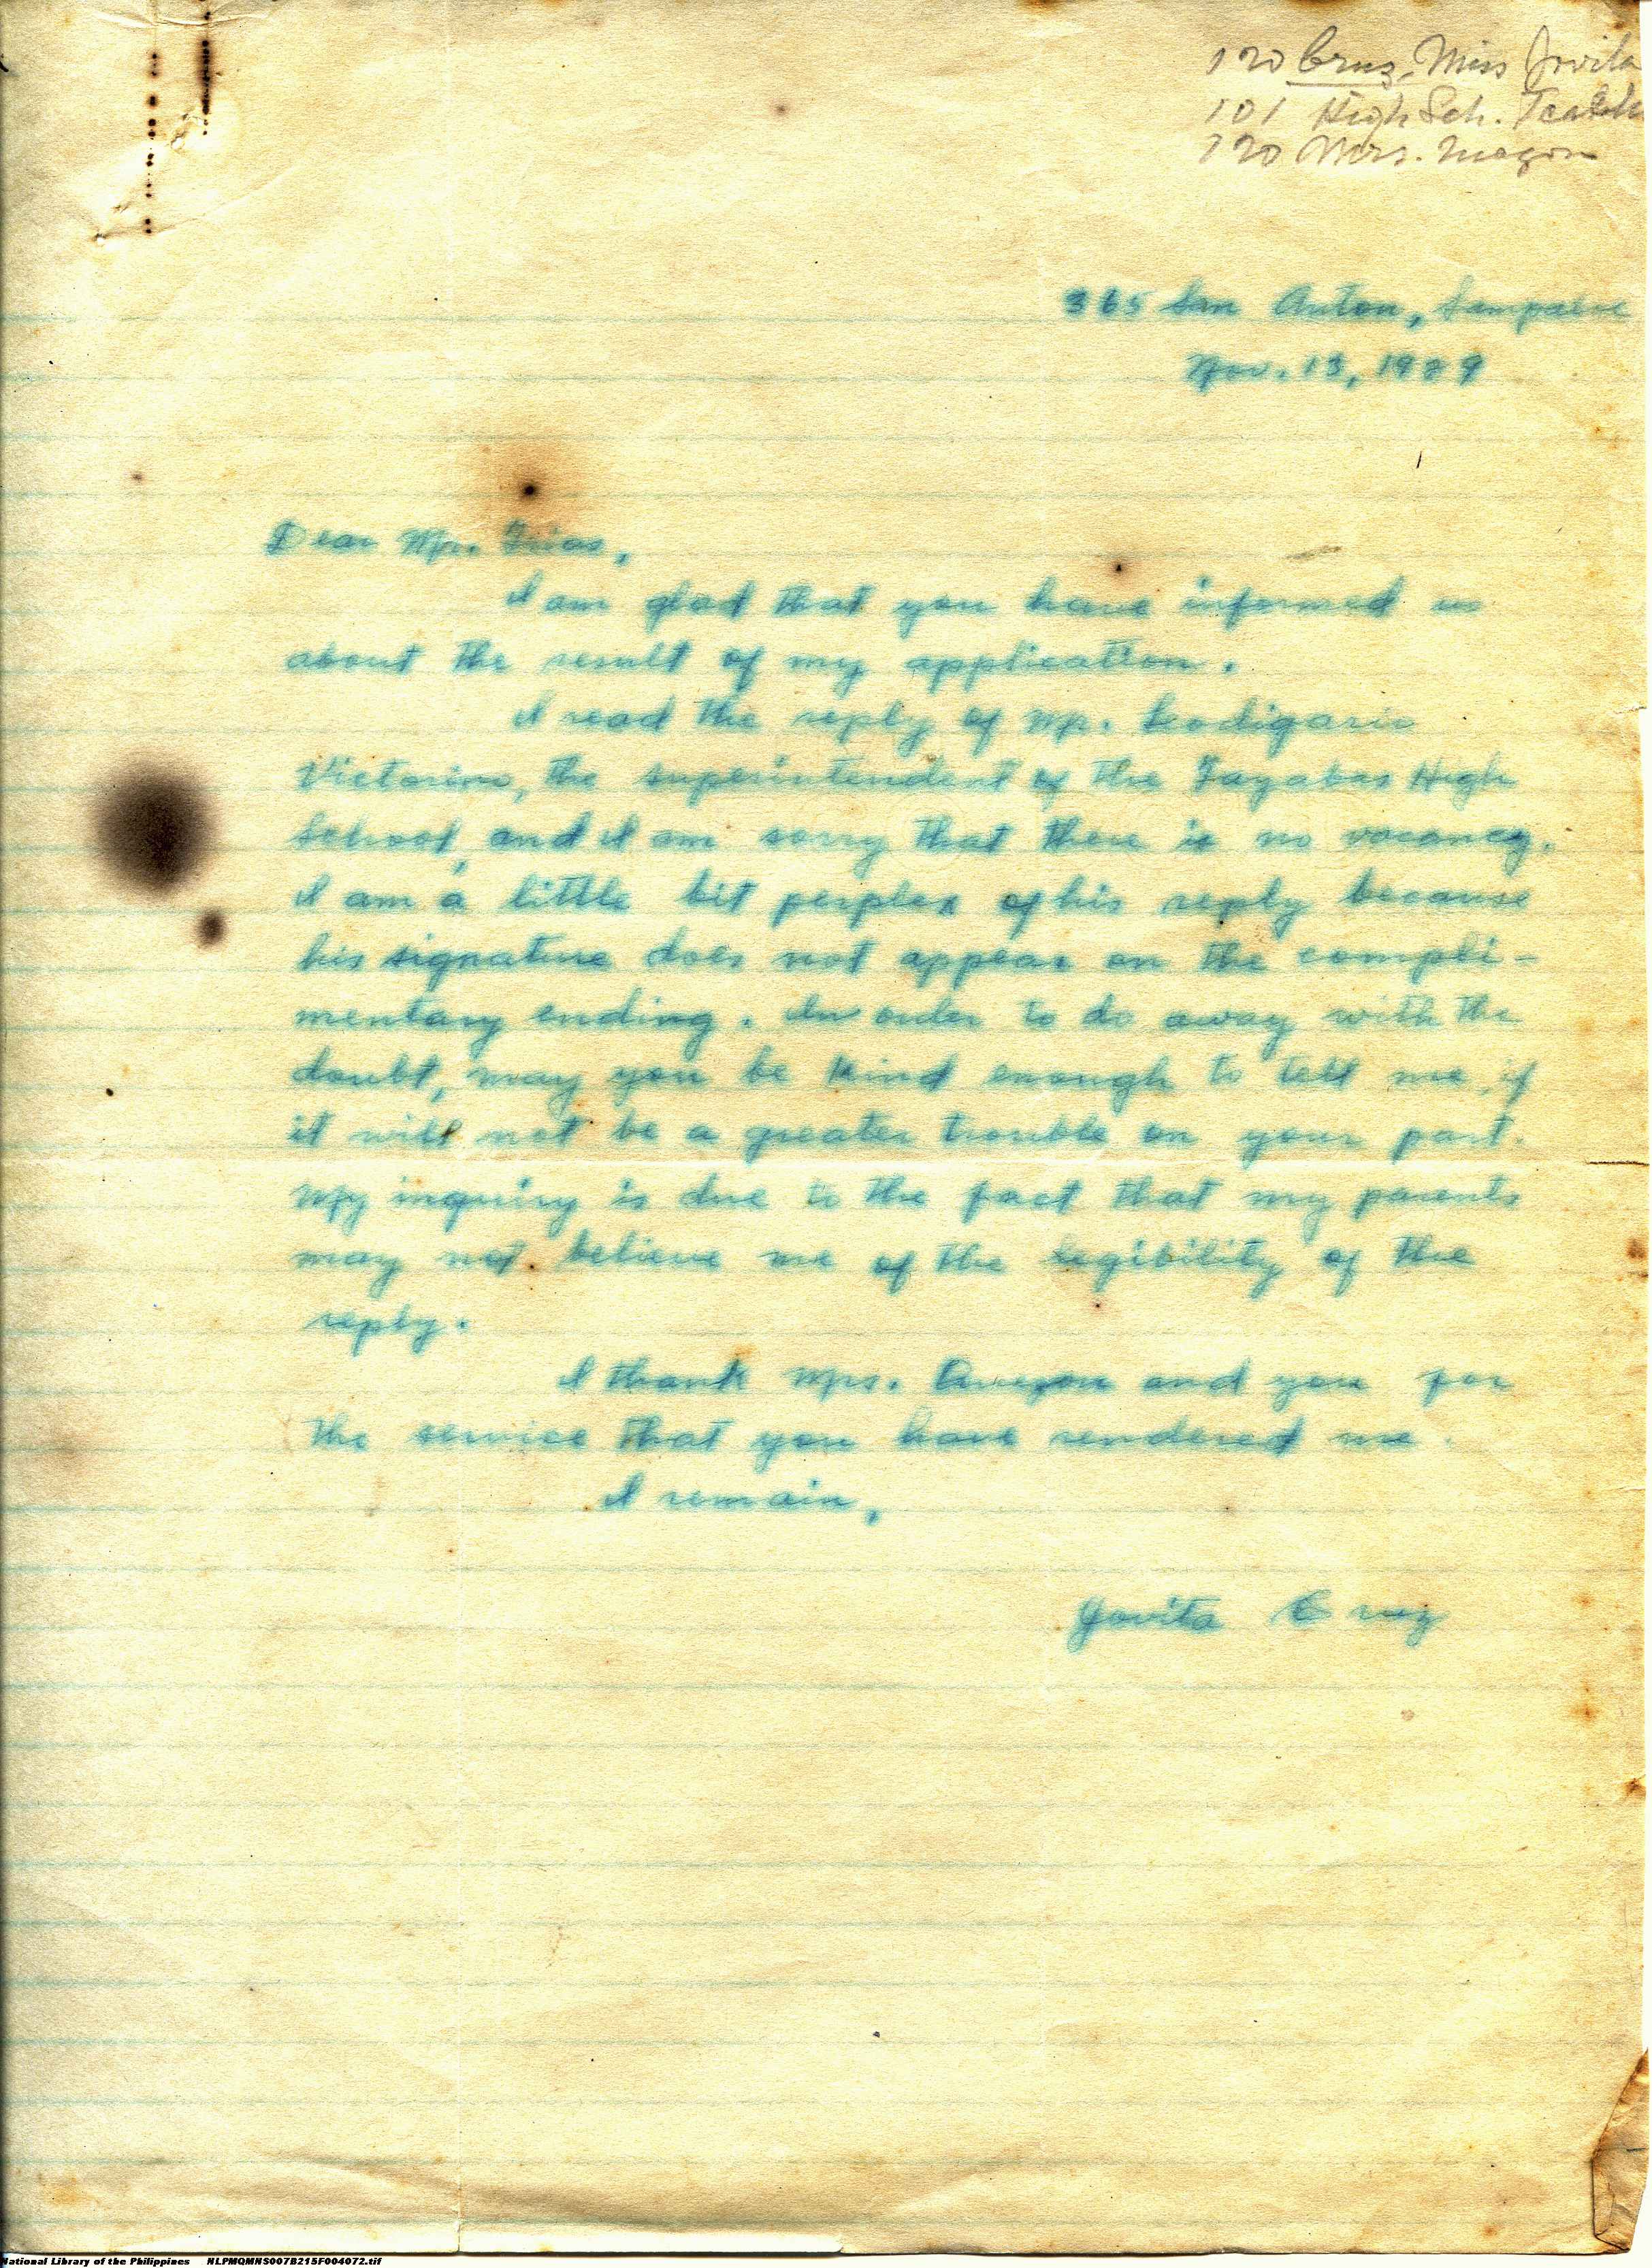 120 Cruz, Miss Jovita
101 High Sch. Teach
120 Mrs.
365 San Anton, Sampaloc
Nov. 13, 1929
Dear Mr. Frias,
I am glad that you have informed us
about the result of my application.
I read the reply of Mr. Leodigario
Victorino, the superintendent of the Tayabas High
School, and I am sorry that there is no vacancy.
I am a little bit perplex of his reply because
his signature does not appear on the compli-
mentary ending. In order to do away with the
doubt, may you be kind enough to tell me, if
it will not be a greater trouble on your part.
My inquiry is due to the fact that my parents
may not believe me of the legibility of the
reply.
I thank Mrs. and you for
the service that you have rendered me.
I remain,
Jovita Cruz
National Library of the Philippines NLPMQMNS007B215F004072.tif